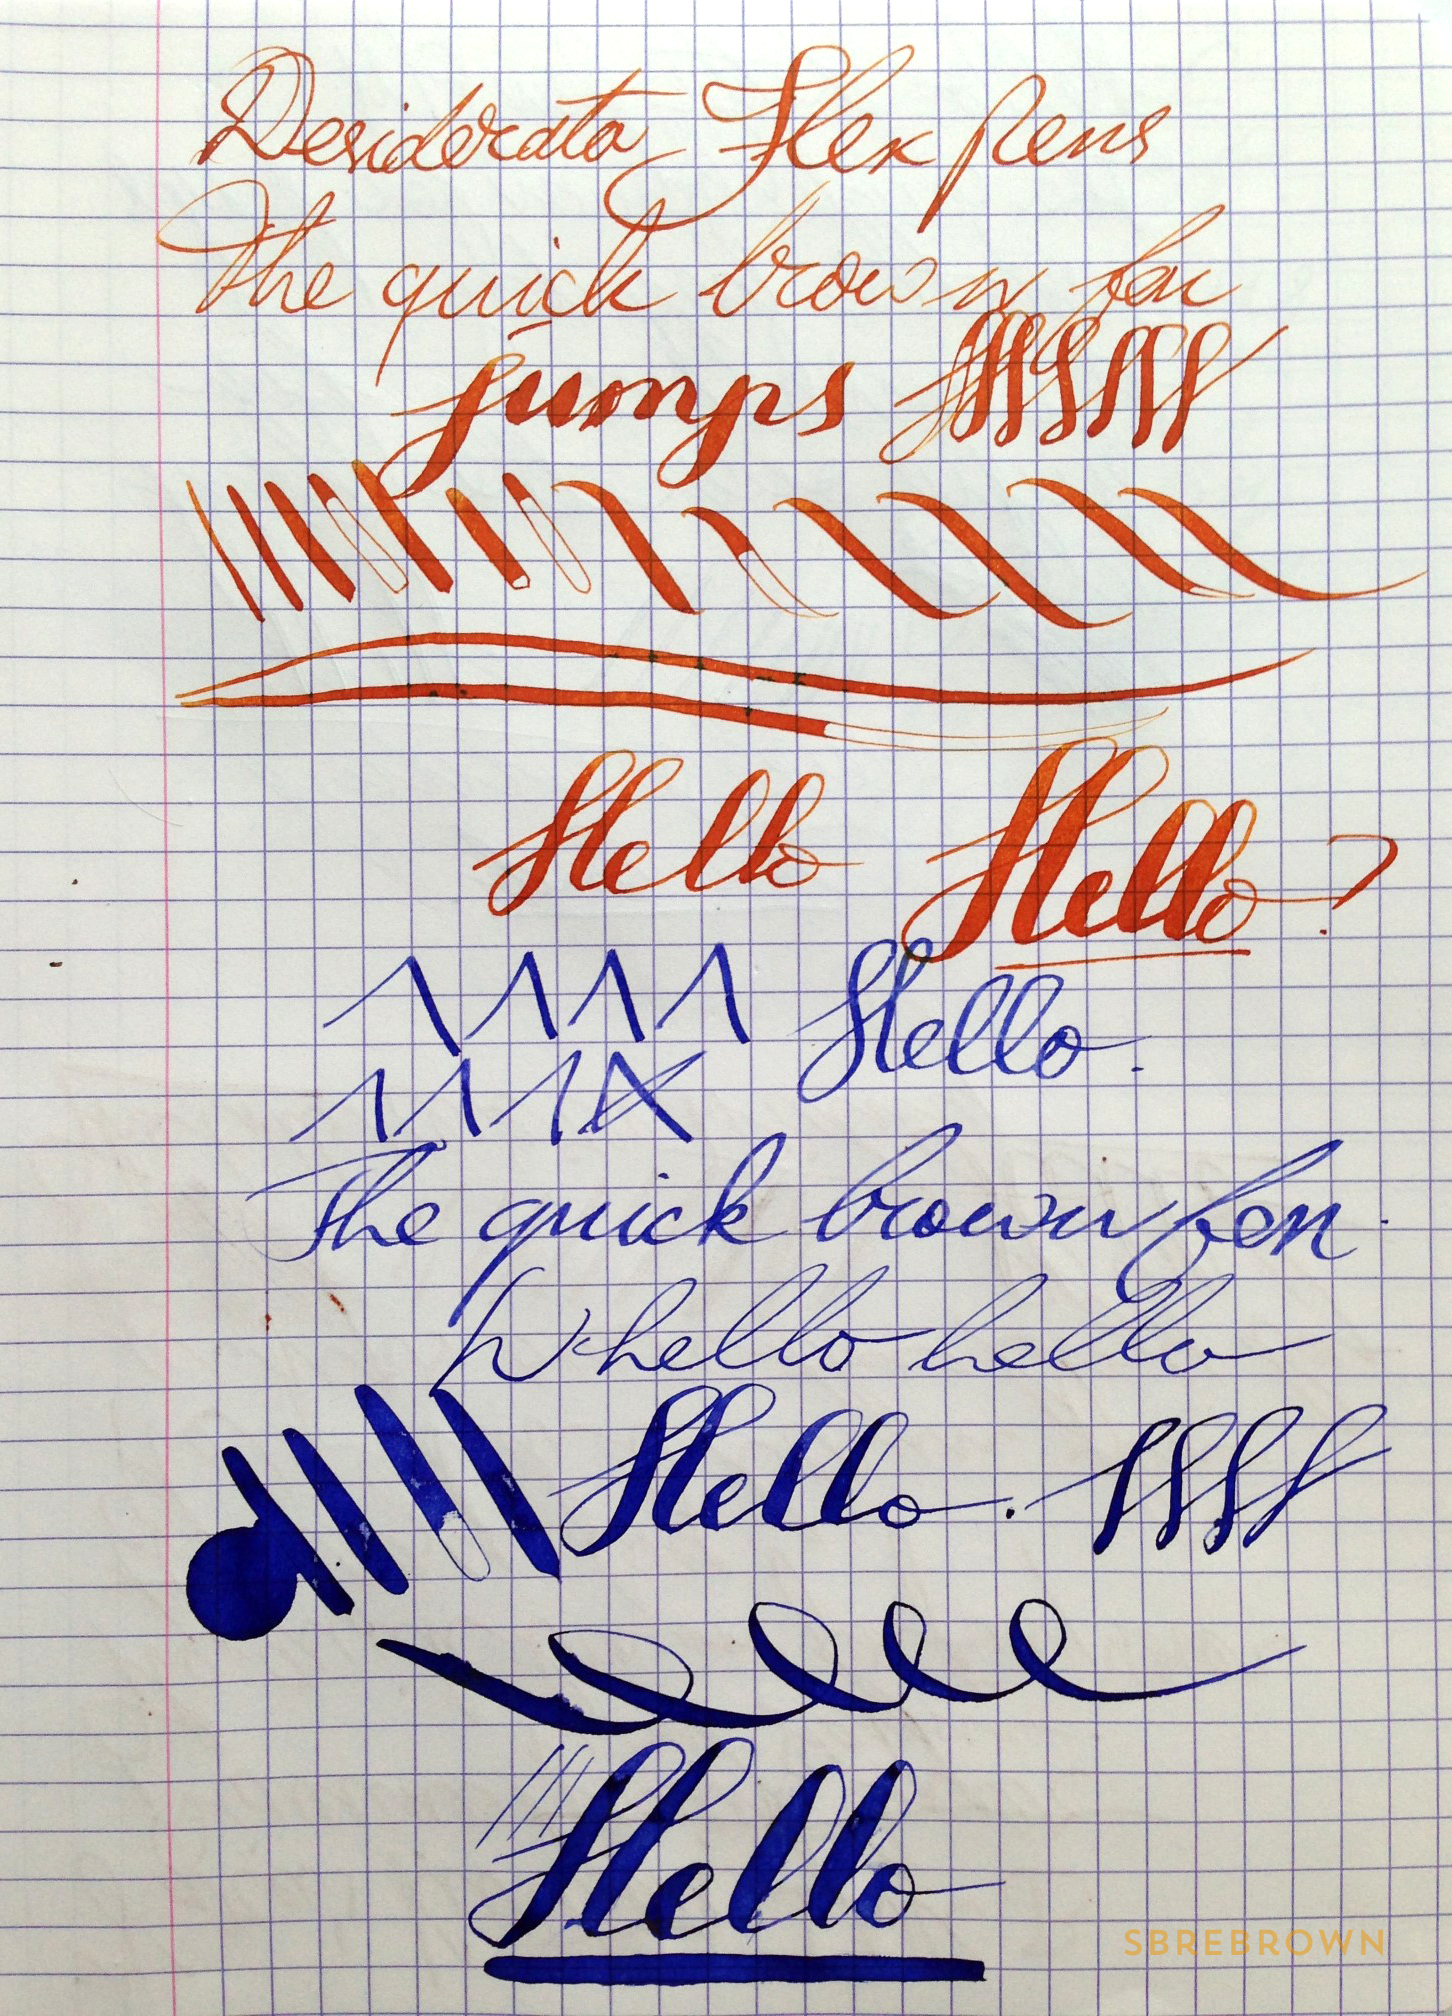 Desiderata Flex Pens
The quick brown fox
jumps
Hello Hello?
Hello.
The quick brown fox.
hello hello
Hello.
Hello
SBREBROWN